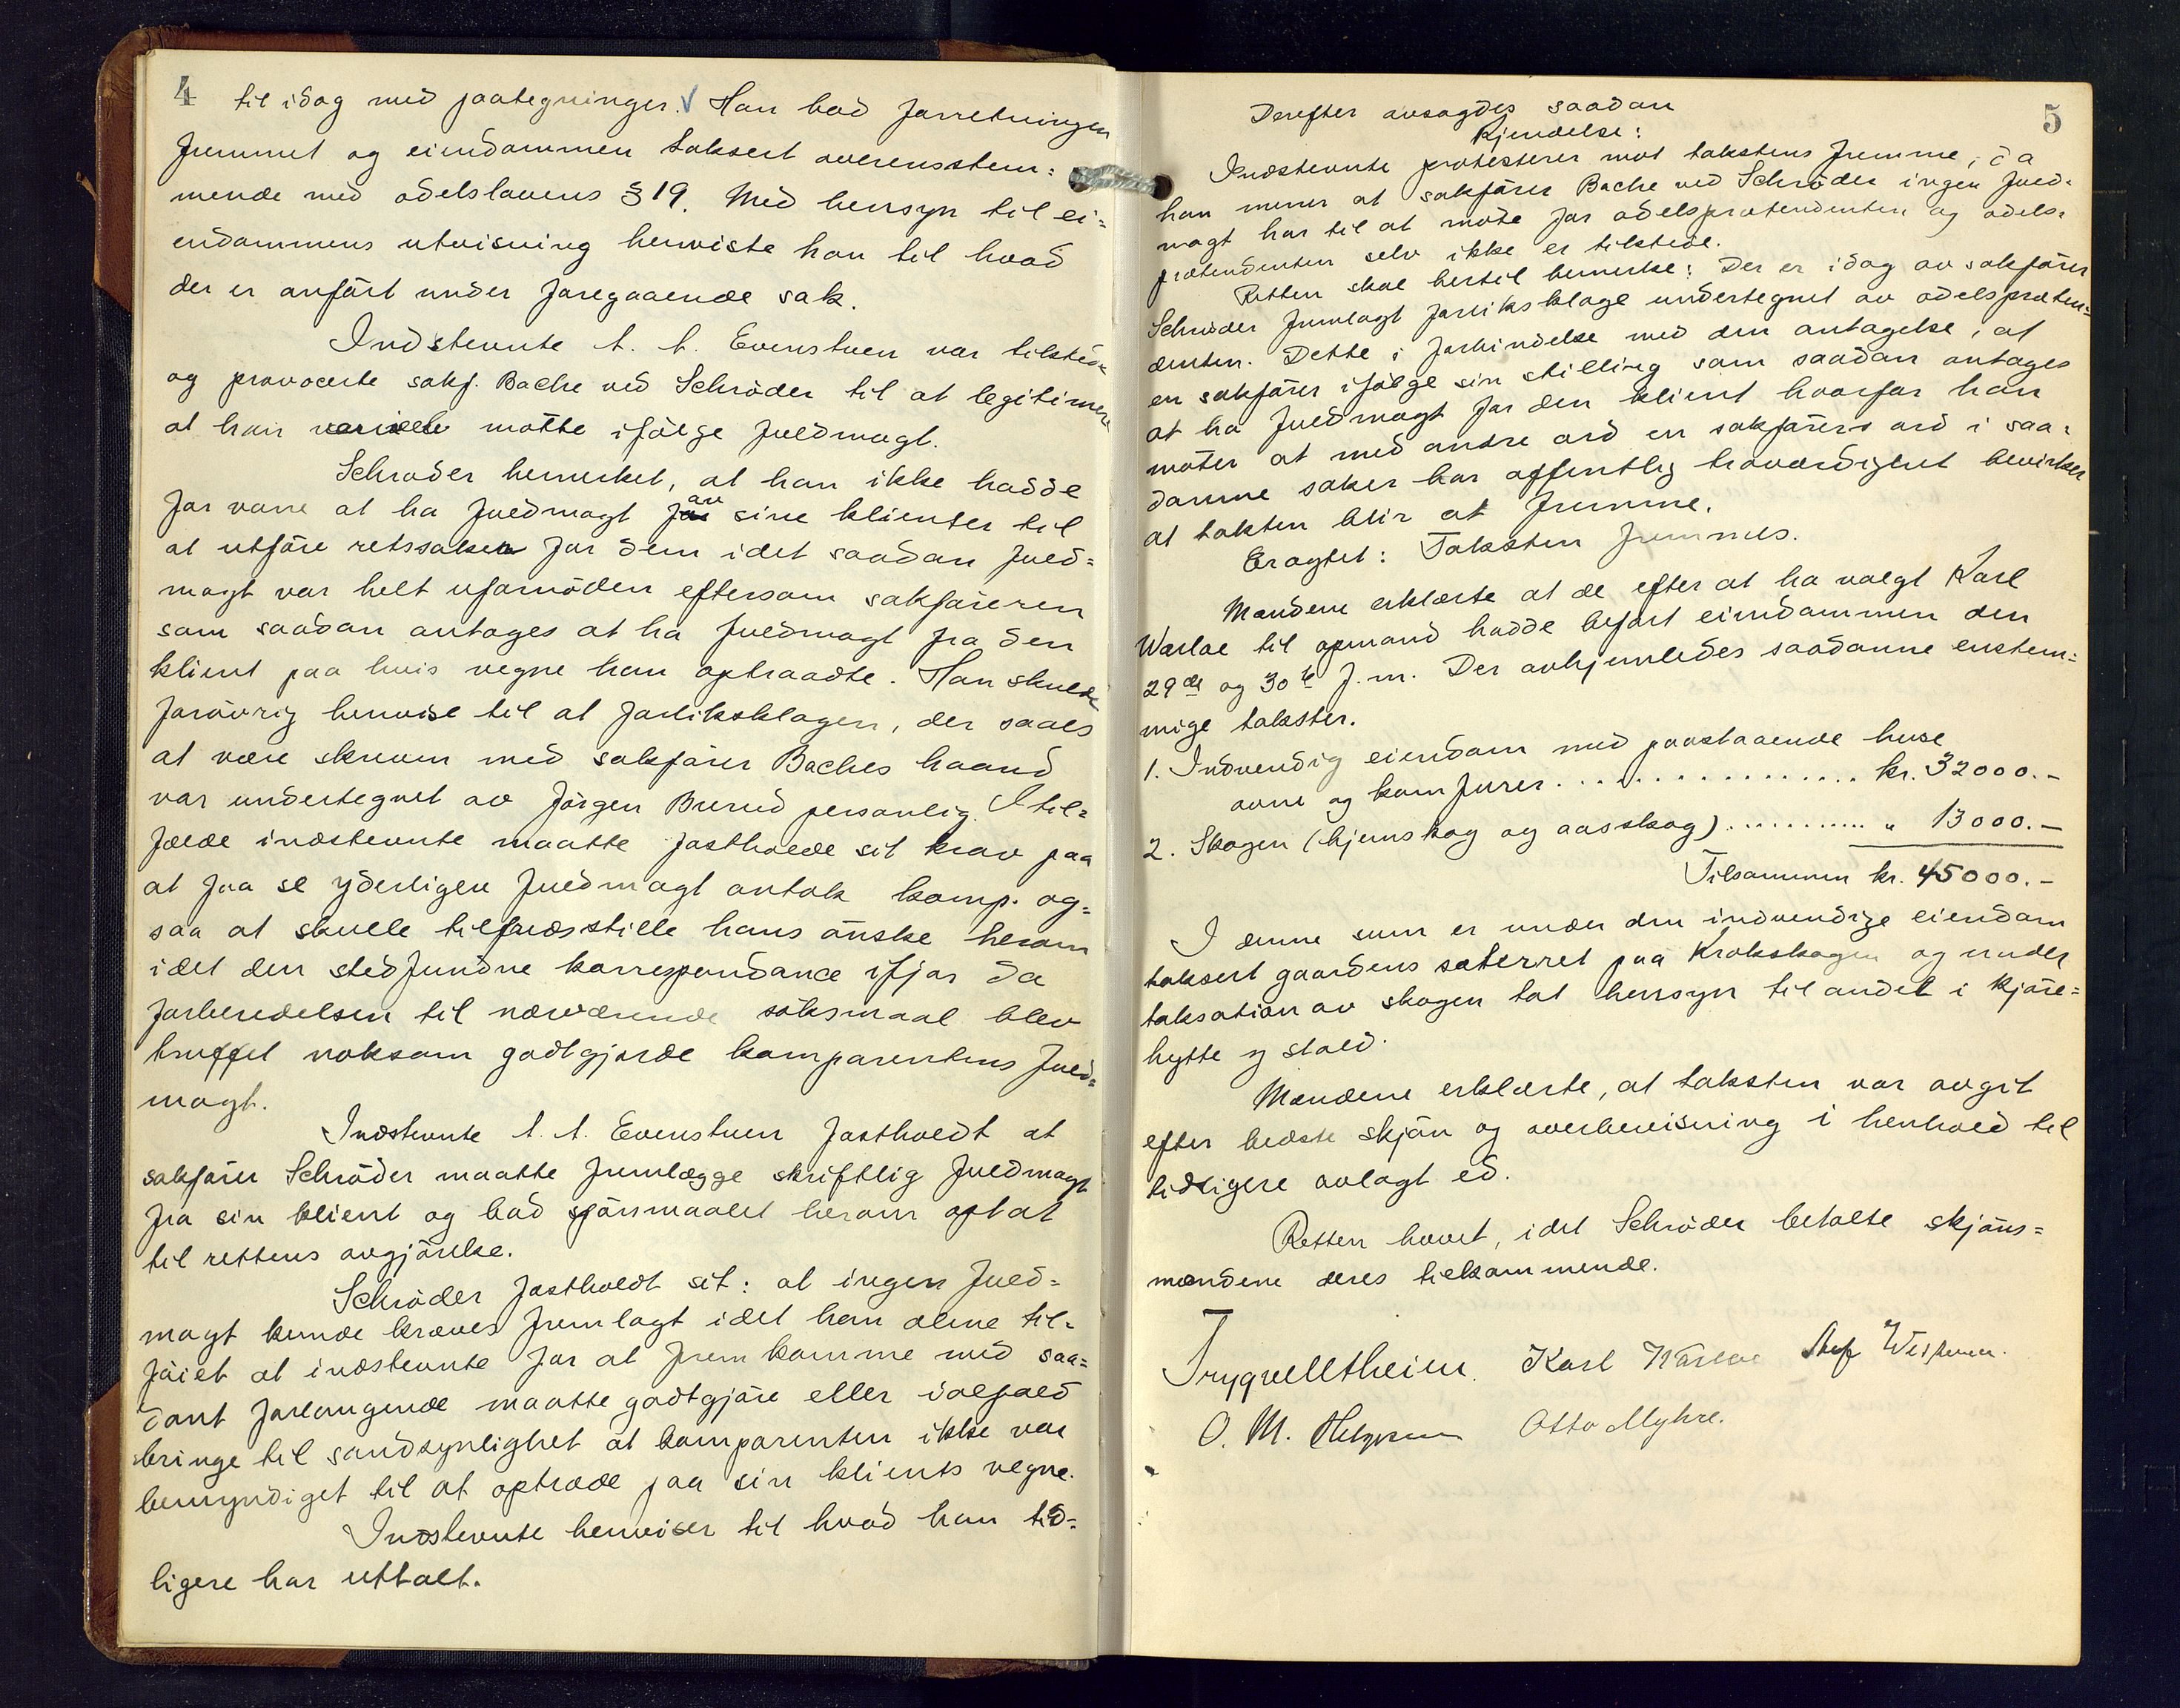 4
til idag med paategninger. √ Han bad forretningen
fremmet og eiendommen taksert overensstem-
mende med odelslovens § 19. Med hensyn til ei-
endommens utvisning henviste han til hvad
der er anført under foregaaende sak.
Indstevnte t. t. Evenstuen var tilstede
og provocerte sakf. Bache ved Schrøder til at legitimere
at han møtte ifølge fuldmagt.
Schrøder bemerket, at han ikke hadde
for vane at ha fuldmagt av sine klienter til
at utføre retssaker for dem idet saadan fuld-
magt var helt ufornøden eftersom sakføreren
som saadan antages at ha fuldmagt fra den
klient paa hvis vegne han optraadte. Han skulde
forøvrig henvise til at forliksklagen, der saaes
at være skreven med sakfører Baches haand
var undertegnet av Jørgen Burud personlig. I til-
fælde indstevnte maatte fastholde sit krav paa
at faa se yderligere fuldmagt antok komp. og-
saa at skulle tilfredsstille hans ønske herom
idet den stedfundne korrespondance ifjor da
forberedelsen til nærværende søksmaal blev
truffet noksom godtgjorde komparentens fuld-
magt.
Indstevnte t. t. Evenstuen fastholdt at
sakfører Schrøder maatte fremlægge skriftlig fuldmagt
fra sin klient og bad spørsmaalet herom optat
til rettens avgjørelse.
Schrøder fastholdt sit: at ingen fuld-
magt kunde kræves fremlagt idet han alene til-
føiet at indstevnte for at fremkomme med saa-
dant forlangende maatte godtgjøre eller ialfald
bringe til sandsynlighet at komparenten ikke var
bemyndiget til at optræde paa sin klients vegne.
Indstevnte henviser til hvad han tid-
ligere har uttalt.
5
Derefter avsagdes saadan
Kjendelse:
Indstevnte protesterer mot takstens fremme, da
han mener at sakfører Bache ved Schrøder ingen fuld-
magt har til at møte for odelsprætendenten og odels-
prætendenten selv ikke er tilstede.
Retten skal hertil bemerke: Der er idag av sakfører
Schrøder fremlagt forliksklage undertegnet av odelspræten-
denten. Dette i forbindelse med den antagelse, at
en sakfører ifølge sin stilling som saadan antages
at ha fuldmagt for den klient hvorfor han
møter at med andre ord en sakførers ord i saa-
danne saker har offentlig troværdighet bevirker
at taksten blir at fremme.
Eragtet: Taksten fremmes.
Mændene erklærte at de efter at ha valgt Karl
Wærloe til opmand hadde befart eiendommen den
29de og 30te f. m. Der avhjemledes saadanne enstem-
mige takster.
1. Indvendig eiendom med paastaaende huse
ovne og komfurer. . . . . . . . . . . . . . . . kr. 32000.-
2. Skogen (hjemskog og aasskog) . . . . . . . . . . . . " 13000.-
Tilsammen kr. 45000.-
I denne sum er under den indvendige eiendom
taksert gaardens sæterret paa Krokskogen og under
taksation av skogen tat hensyn til andel i kjøre-
hytte og stald.
Mændene erklærte, at taksten var avgit
efter bedste skjøn og overbevisning i henhold til
tidligere avlagt ed.
Retten hævet, idet Schrøder betalte skjøns-
mændene deres tilkommende.
Karl Wærloe
O. M. Otto Myhre.